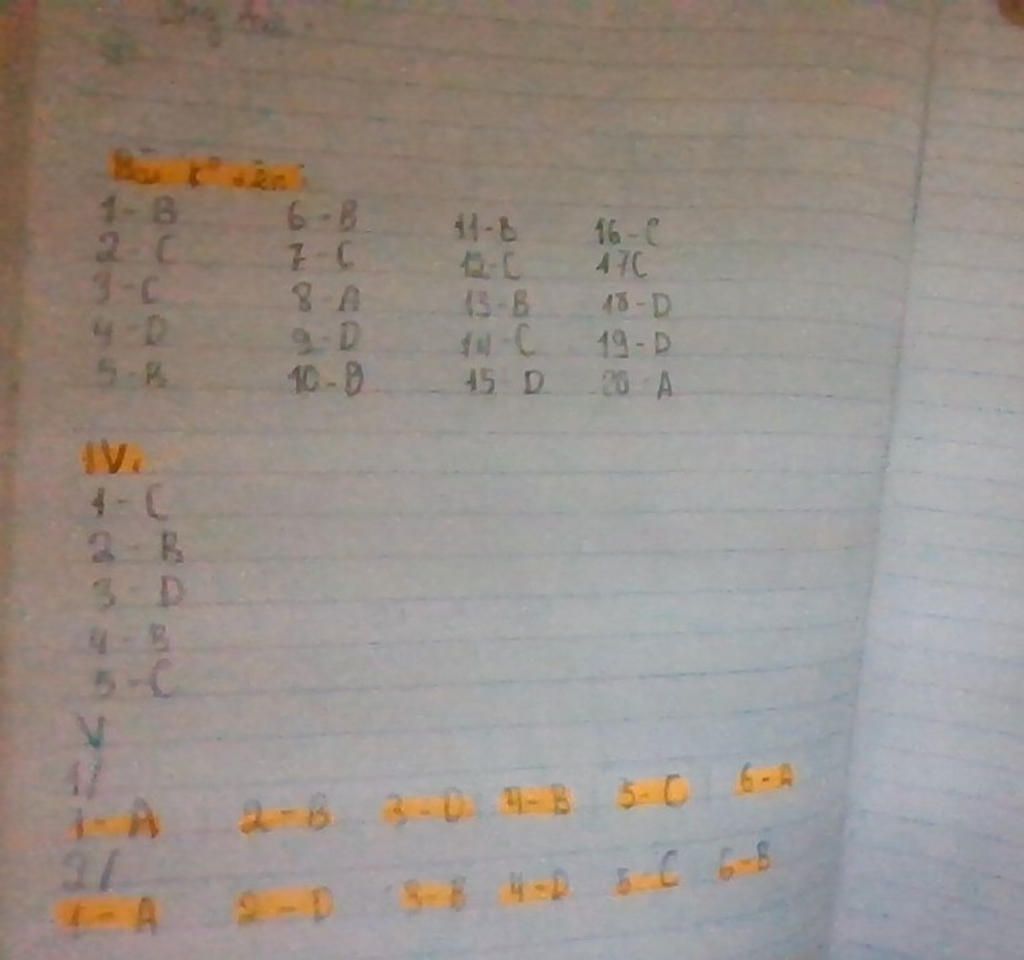 1 - B 6 - B 11 - B 16 - C
2 - C 7 - C 12 - C 17 C
3 - C 8 - A 13 - B 18 - D
4 - D 9 - D 14 - C 19 - D
5 - B 10 - B 15 D 20 - A
IV.
1 - C
2 - B
3 - D
4 - B
5 - C
V
1/
1 - A 2 - B 3 - D 4 - B 5 - C 6 - A
2/
1 - A 2 - D 3 - B 4 - D 5 - C 6 - B